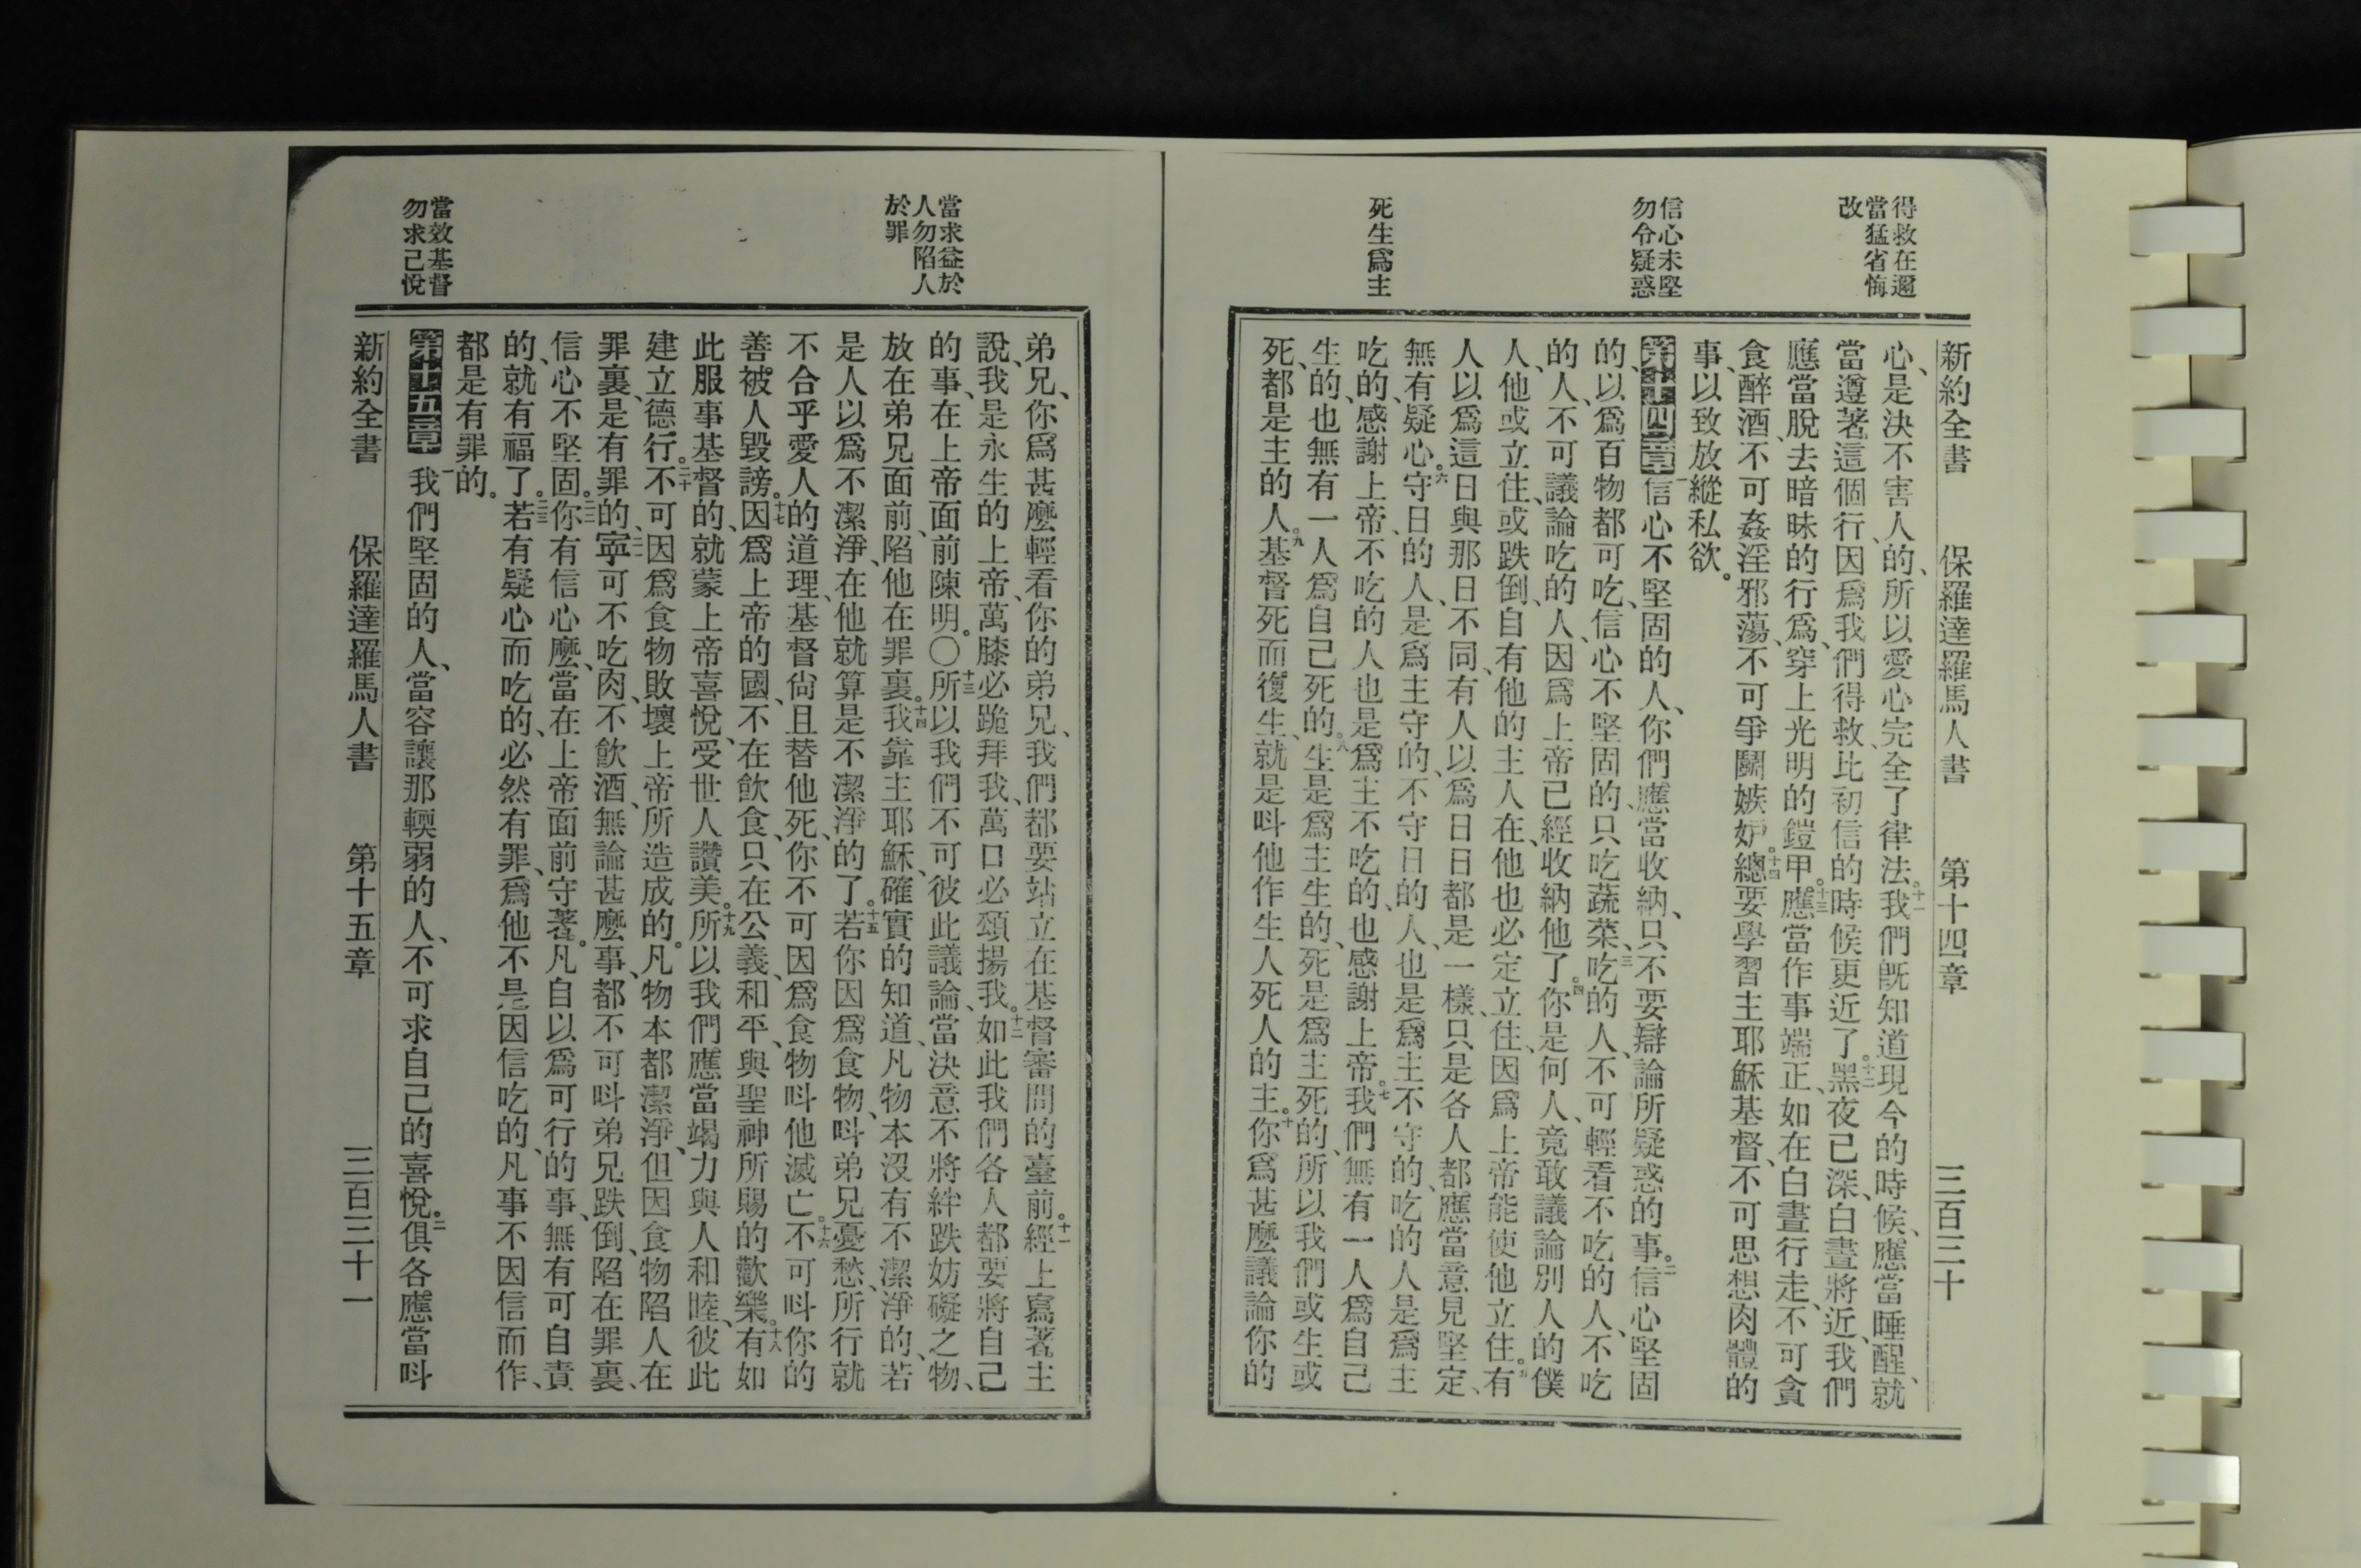 得救在邇
當猛省悔
改
信心未堅
勿令疑惑
死生爲主
新約全書 保羅達羅馬人書 第十四章 三百三十
心、是決不害人的、所以愛心完全了律法。十一我們旣知道現今的時候、應當睡醒、就
當遵著這個行、因爲我們得救、比初信的時候更近了。十二黑夜已深、白晝將近、我們
應當脫去暗昧的行爲、穿上光明的鎧甲。十三應當作事端正、如在白晝行走、不可貪
食醉酒、不可姦淫邪蕩、不可爭鬭嫉妒。十四總要學習主耶穌基督、不可思想肉體的
事、以致放縱私欲。
第十四章 一信心不堅固的人、你們應當收納、只不要辯論所疑惑的事。二信心堅固
的、以爲百物都可吃、信心不堅固的、只吃蔬菜、三吃的人、不可輕看不吃的人、不吃
的人、不可議論吃的人、因爲上帝已經收納他了。四你是何人、竟敢議論別人的僕
人、他或立住、或跌倒、自有他的主人在、他也必定立住、因爲上帝能使他立住。五有
人以爲這日與那日不同、有人以爲日日都是一樣、只是各人都應當意見堅定、
無有疑心。六守日的人、是爲主守的、不守日的人、也是爲主不守的、吃的人是爲主
吃的、感謝上帝、不吃的人也是爲主不吃的、也感謝上帝。七我們無有一人爲自己
生的、也無有一人爲自己死的。八生是爲主生的、死是爲主死的、所以我們或生或
死、都是主的人。九基督死而復生、就是呌他作生人死人的主。十你爲甚麽議論你的
當求益於
人勿陷人
於罪
當效基督
勿求己悅
弟兄、你爲甚麽輕看你的弟兄、我們都要站立在基督審問的臺前。十一經上寫著主
說、我是永生的上帝、萬膝必跪拜我、萬口必頌揚我。十二如此我們各人都要將自己
的事、在上帝面前陳明。〇十三所以我們不可彼此議論、當決意不將絆跌妨礙之物、
放在弟兄面前、陷他在罪裏。十四我靠主耶穌、確實的知道、凡物本沒有不潔淨的、若
是人以爲不潔淨、在他就算是不潔淨的了。十五若你因爲食物、呌弟兄憂愁、所行就
不合乎愛人的道理、基督尙且替他死、你不可因爲食物呌他滅亡。十六不可呌你的
善被人毀謗。十七因爲上帝的國、不在飮食、只在公義、和平、與聖神所賜的歡樂。十八有如
此服事基督的、就蒙上帝喜悅、受世人讚美。十九所以我們應當竭力與人和睦、彼此
建立德行。二十不可因爲食物敗壞上帝所造成的。凡物本都潔淨、但因食物陷人在
罪裏、是有罪的、二一寧可不吃肉、不飮酒、無論甚麽事、都不可呌弟兄跌倒、陷在罪裏、
信心不堅固。二二你有信心麽、當在上帝面前守著。凡自以爲可行的事、無有可自責
的、就有福了。二三若有疑心而吃的、必然有罪、爲他不是因信吃的、凡事不因信而作、
都是有罪的。
第十五章 一我們堅固的人、當容讓那輭弱的人、不可求自己的喜悅。二俱各應當呌
新約全書 保羅達羅馬人書 第十五章 三百三十一